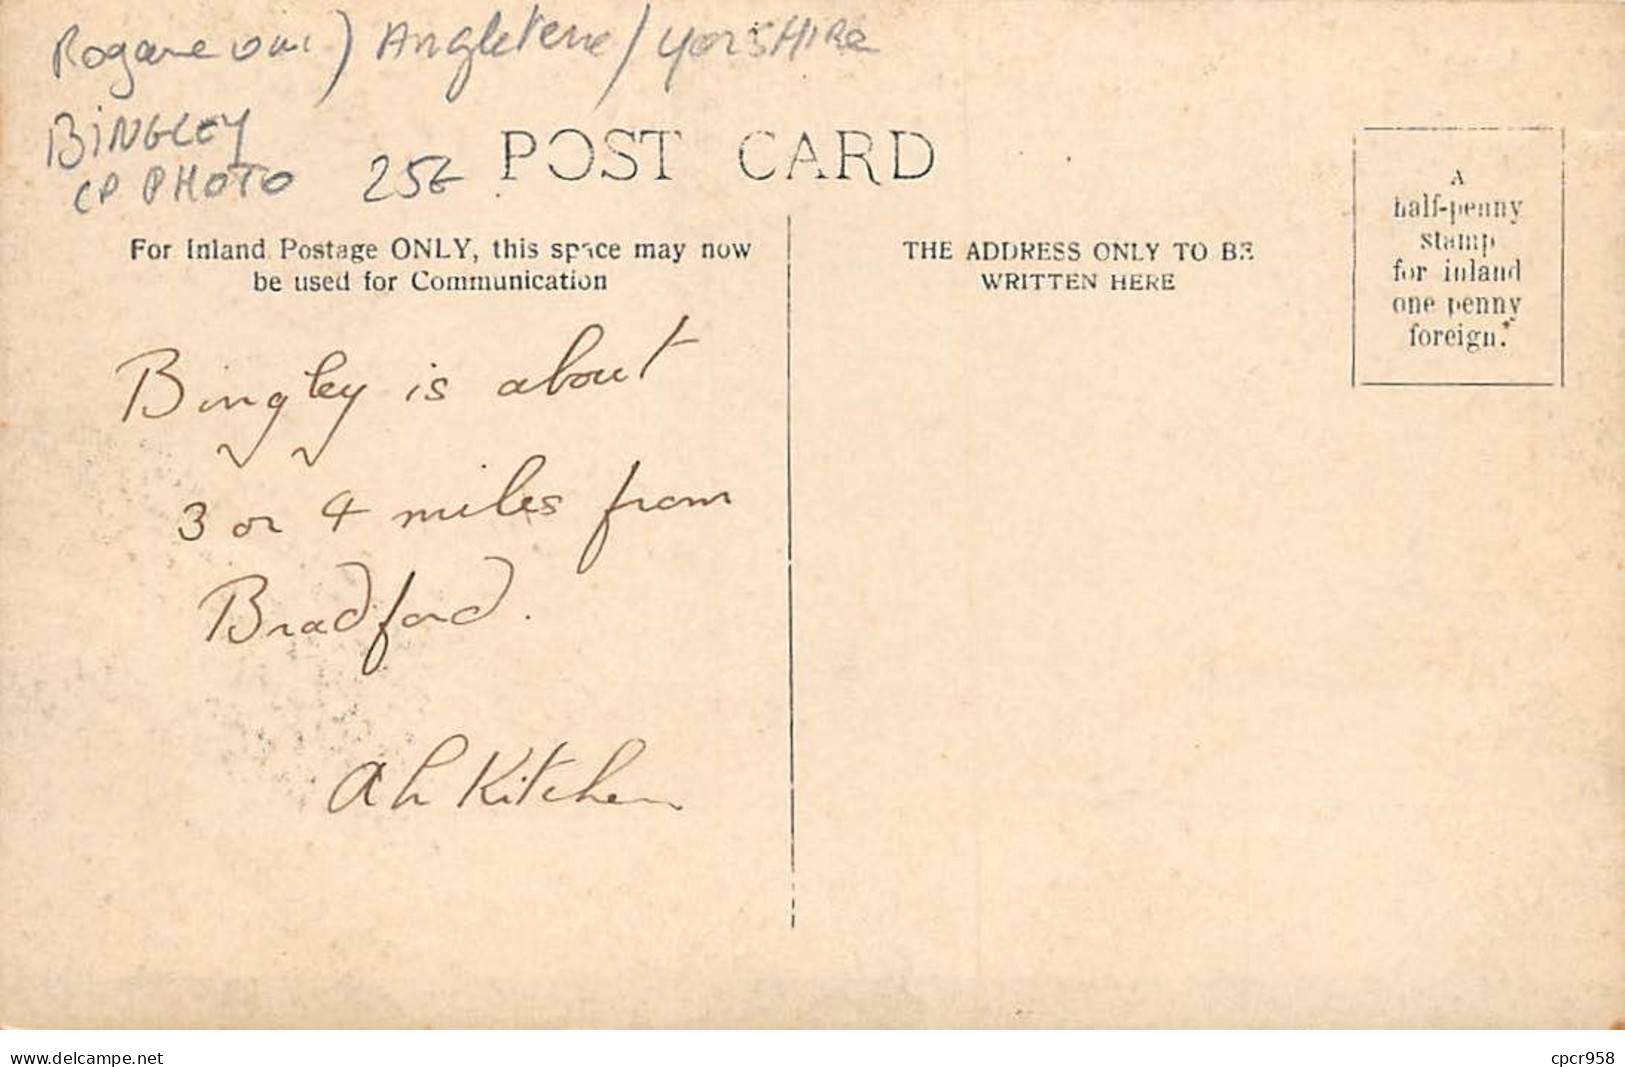 Angleterre / YorSHIRE
BINGLEY
CP PHOTO 25€
POST CARD
For Inland Postage ONLY, this space may now
be used for Communication
THE ADDRESS ONLY TO BE
WRITTEN HERE
A
half-penny
stamp
for inland
one penny
foreign.
Bingley is about
3 or 4 miles from
Bradford.
ah Kitchen
www.delcampe.net
cpcr958